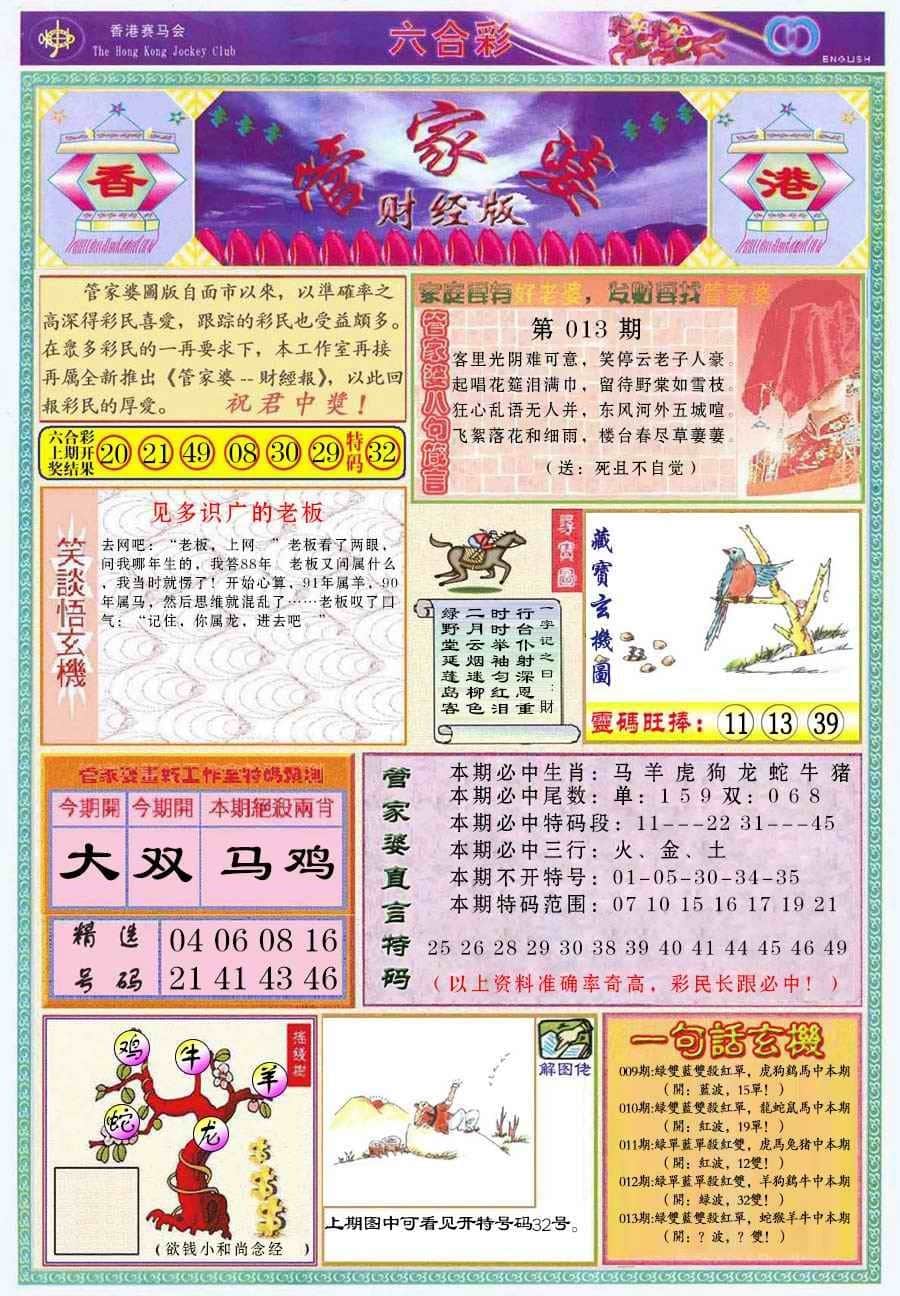 香港赛马会
The Hong Kong Jockey Club
六合彩
ENGLISH
香
管家婆
财经版
港
管家婆圖版自面市以來，以準確率之
高深得彩民喜愛，跟踪的彩民也受益頗多。
在衆多彩民的一再要求下，本工作室再接
再厲全新推出《管家婆--財經報》，以此回
報彩民的厚愛。 祝君中獎！
六合彩
上期开
奖结果
20 21 49 08 30 29 特码 32
管家婆八句箴言
第 013 期
客里光阴难可意，笑停云老子人豪。
起唱花筵泪满巾，留待野棠如雪枝。
狂心乱语无人并，东风河外五城喧。
飞絮落花和细雨，楼台春尽草萋萋。
（送：死且不自觉）
笑談悟玄機
见多识广的老板
去网吧：“老板，上网。”老板看了两眼，
问我哪年生的，我答88年。老板又问属什么
，我当时就愣了！开始心算，91年属羊，90
年属马，然后思维就混乱了……老板叹了口
气：“记住，你属龙，进去吧。”
尋寶圖
一字记之曰：財
行台仆射深恩重
时时举袖匀红泪
二月云烟迷柳色
绿野堂延蓬岛客
藏寶玄機圖
靈碼旺捧：11 13 39
今期開 今期開 本期絕殺兩肖
大 双 马 鸡
精选
号码
04 06 08 16
21 41 43 46
管家婆直言特码
本期必中生肖：马 羊 虎 狗 龙 蛇 牛 猪
本期必中尾数：单：1 5 9 双：0 6 8
本期必中特码段：11---22 31---45
本期必中三行：火、金、土
本期不开特号：01-05-30-34-35
本期特码范围：07 10 15 16 17 19 21
25 26 28 29 30 38 39 40 41 44 45 46 49
（以上资料准确率奇高，彩民长跟必中！）
摇錢樹
鸡
牛
羊
蛇
龙
（欲钱小和尚念经 ）
解图佬
上期图中可看见开特号码32号。
一句話玄機
009期:緑雙藍雙殺紅單，虎狗鷄馬中本期
（開：藍波，15單！）
010期:緑雙藍雙殺紅單，龍蛇鼠馬中本期
（開：紅波，19單！）
011期:緑單藍單殺紅雙，虎馬兔猪中本期
（開：紅波，12雙！）
012期:緑單藍單殺紅雙，羊狗鷄牛中本期
（開：緑波，32雙！）
013期:緑雙藍雙殺紅單，蛇猴羊牛中本期
（開：？波，？雙！）